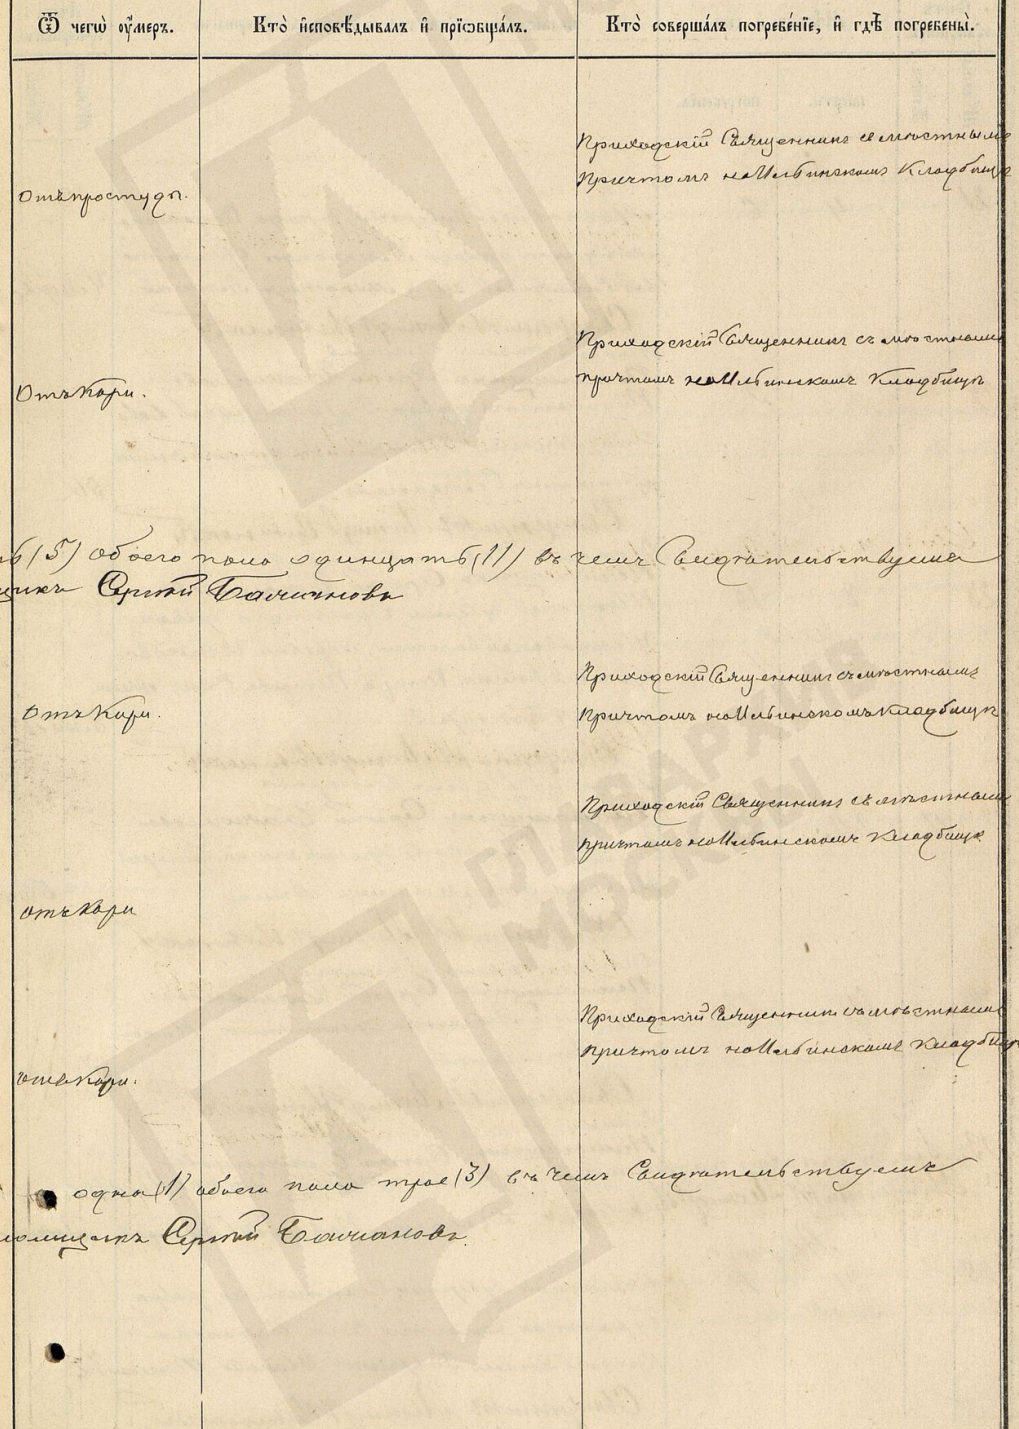 Ѿ чегѡ оу҆́меръ.
Кто̀ и҆сповѣ́дывалъ и҆ прїѡбща́лъ.
Кто̀ соверша́лъ погребе́нїе, и҆ гдѣ̀ погребены̀.
Приходскій Священникъ съ мѣстнымъ
Причтомъ на Ильинскомъ Кладбищѣ
Отъ простуды.
Приходскій Священникъ съ мѣстнымъ
причтомъ на Ильинскомъ Кладбищѣ
Отъ Кори.
(5) обоего пола одинцать (11) въ чемъ Свидѣтельствуемъ
Сергій
Приходскій Священникъ съ мѣстнымъ
Причтомъ на Ильинскомъ Кладбищѣ
Отъ Кори.
Приходскій Священникъ съ мѣстнымъ
причтомъ на Ильинскомъ Кладбищѣ
отъ Кори
Приходскій Священникъ съ мѣстнымъ
причтомъ на Ильинскомъ Кладбищѣ
отъ Кори.
одна (1) обоего пола трое (3) въ чемъ Свидѣтельствуемъ
Сергій
ГЛАВАРХИВ
МОСКВЫ